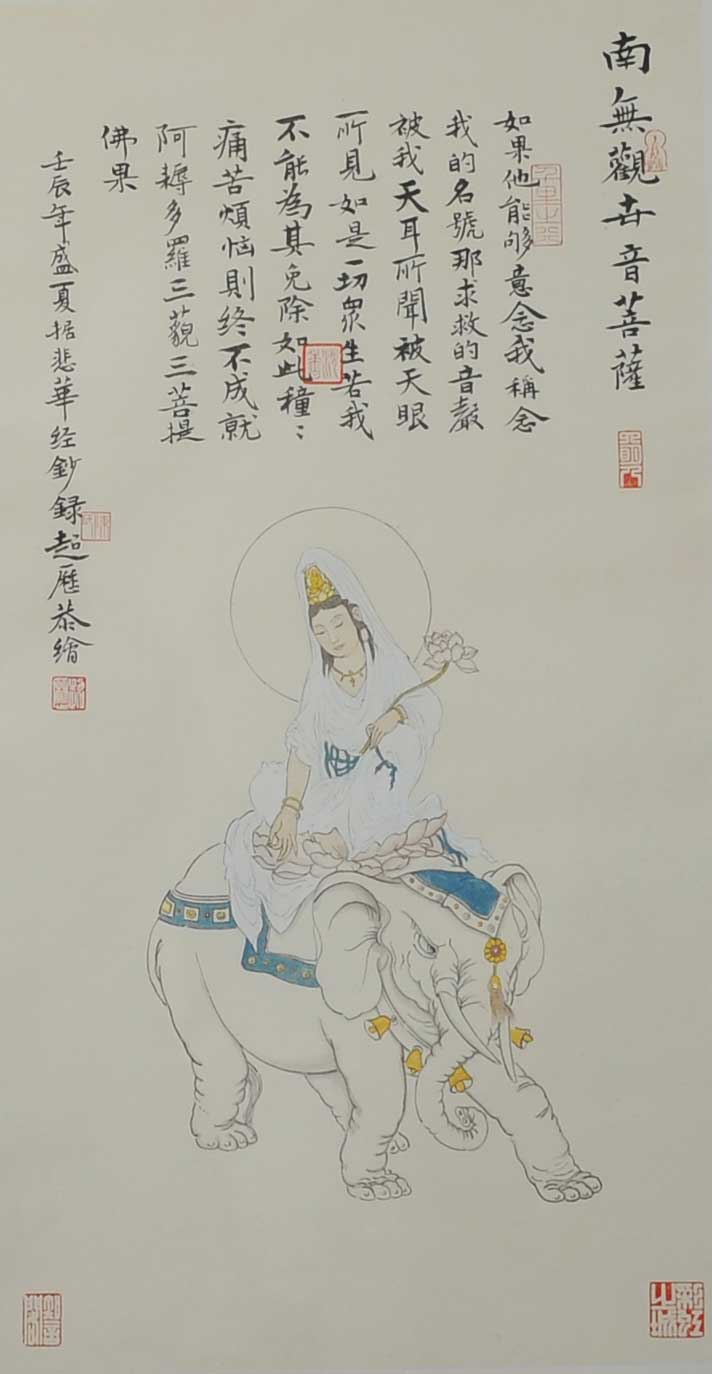 南無觀世音菩薩
如果他能够意念我稱念
我的名號那求救的音聲
被我天耳所聞被天眼
所見如是一切眾生若我
不能為其免除如此種〻
痛苦煩惱則终不成就
阿耨多羅三藐三菩提
佛果
壬辰年盛夏据悲華经鈔録超歷恭繪